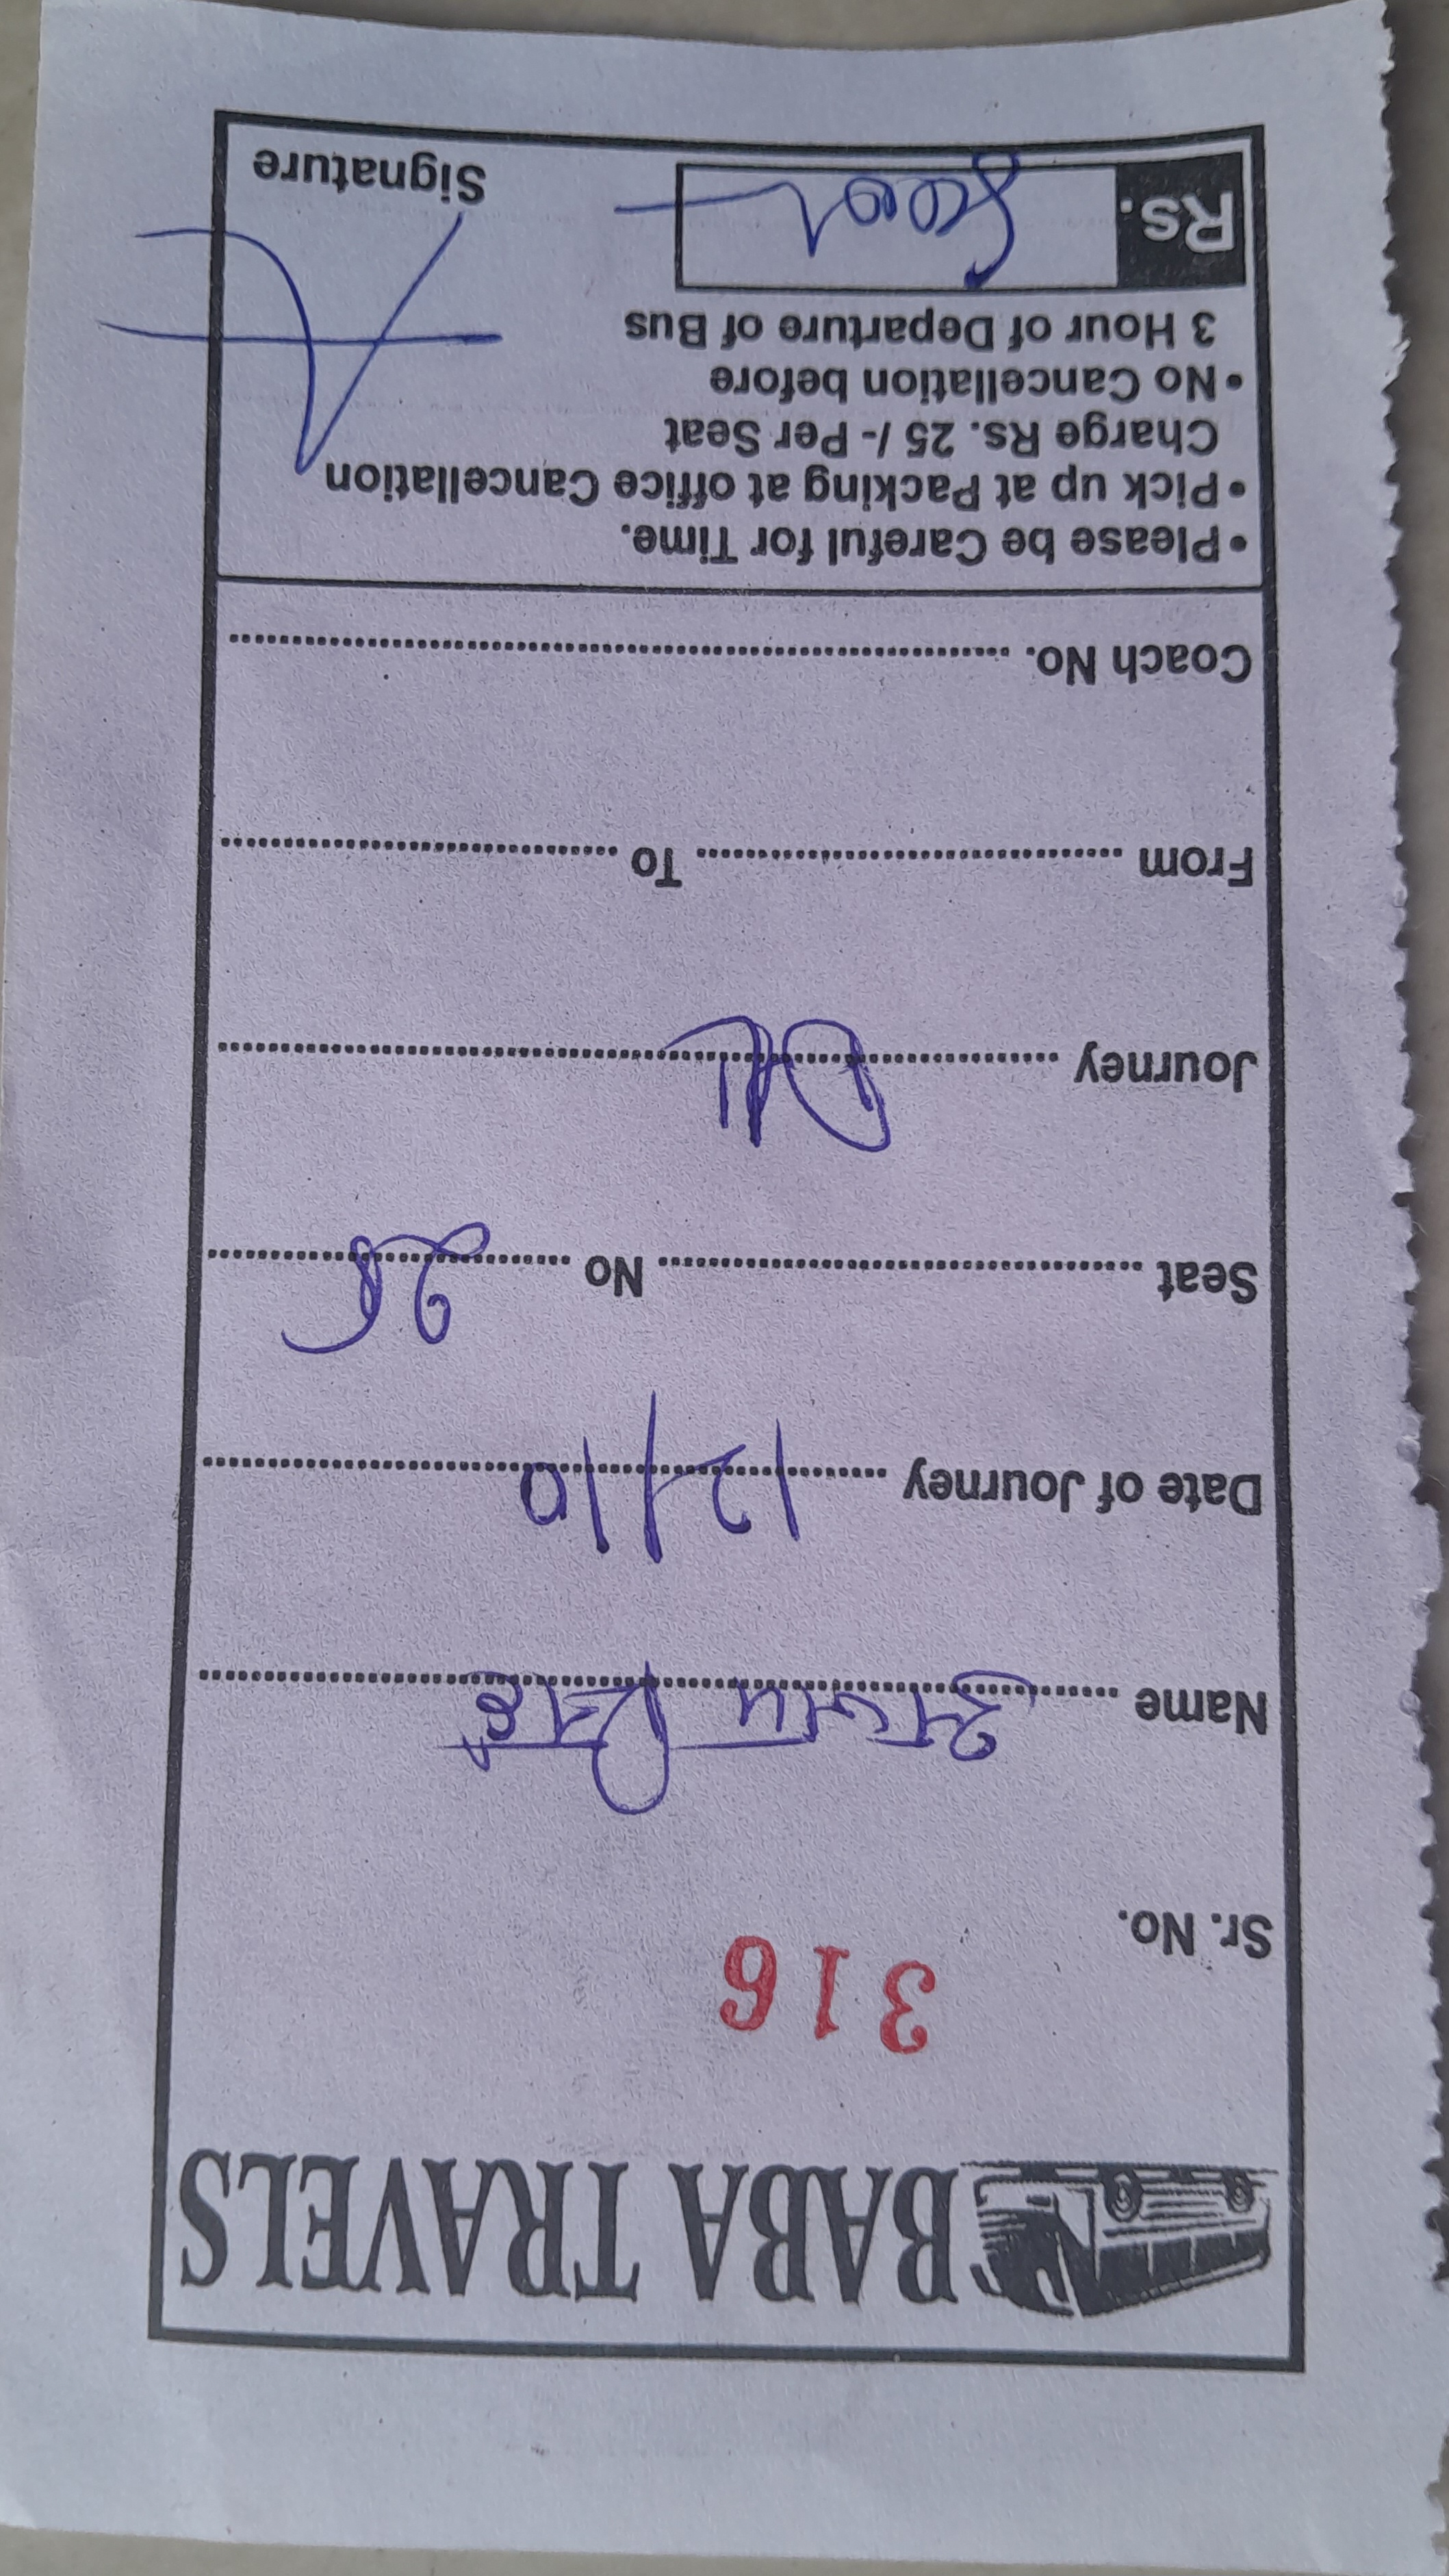 BABA TRAVELS
316
Sr. No.
Name अजय सिंह
Date of Journey 12/10
Seat No
Journey
From To
Coach No.
• Please be Careful for Time.
• Pick up at Packing at office Cancellation
Charge Rs. 25 /- Per Seat
• No Cancellation before
3 Hour of Departure of Bus
Rs.
Signature